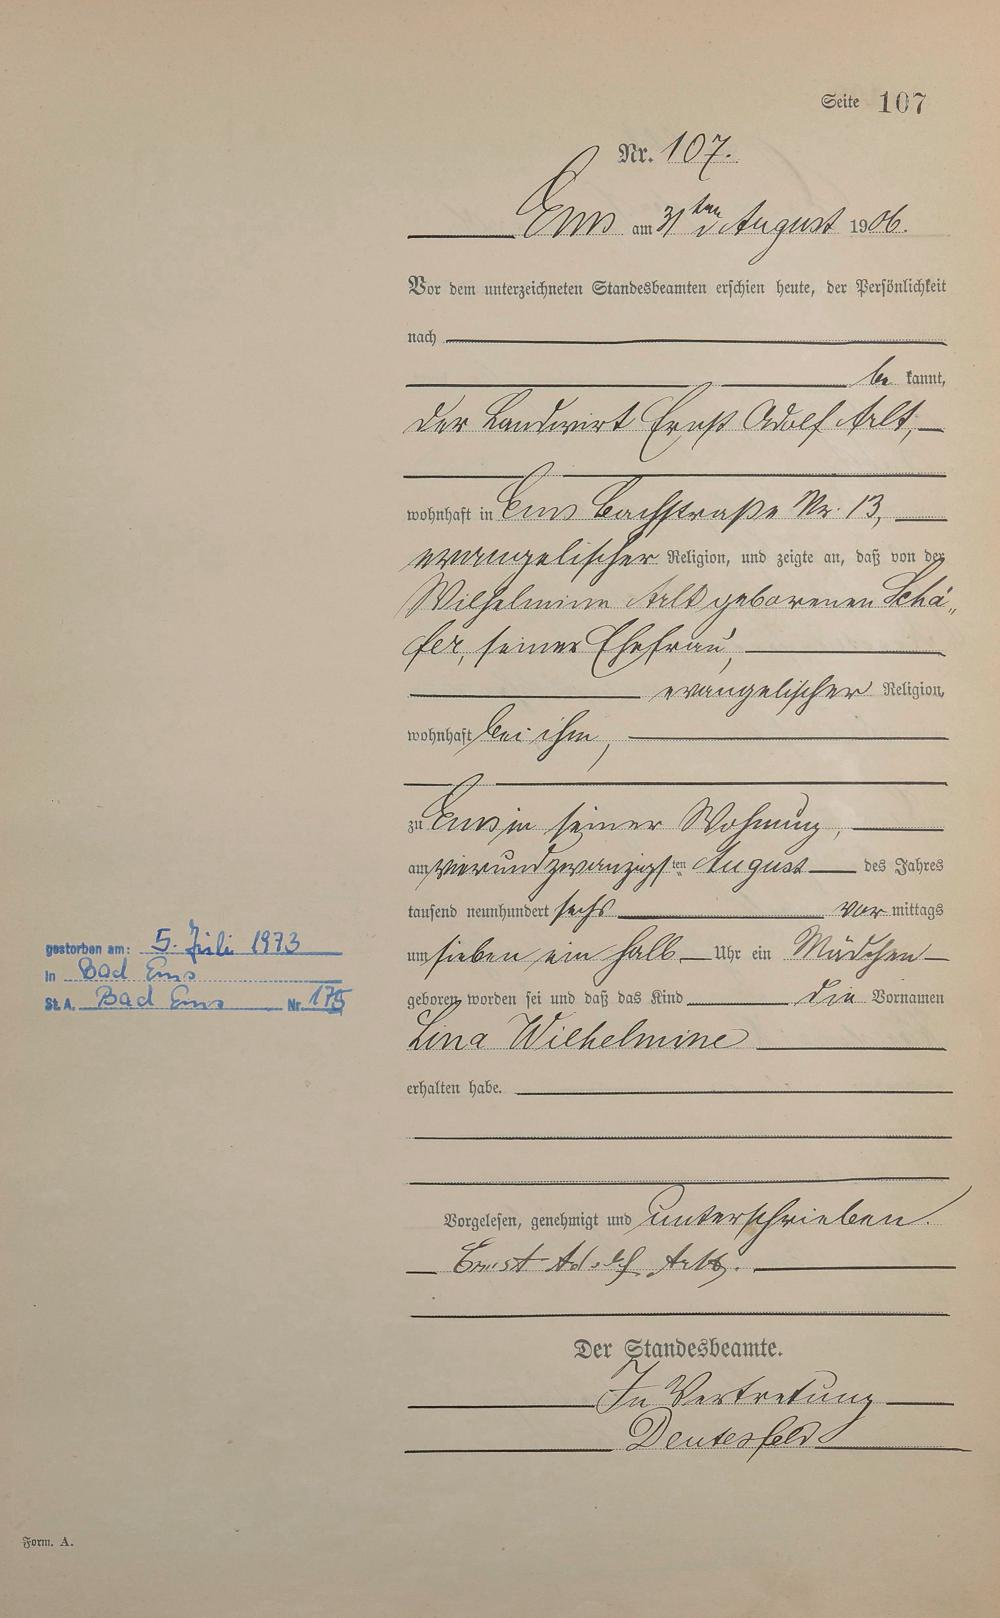 Seite 107
Nr. 107.
Ems am 31ten August 1906.
Vor dem unterzeichneten Standesbeamten erschien heute, der Persönlichkeit
nach
be kannt,
der Landwirt Ernst Adolf Arlt,
wohnhaft in Ems Bachstraße Nr. 13,
evangelischer Religion, und zeigte an, daß von der
Wilhelmine Arlt geborenen Schä„
fer, seiner Ehefrau,
evangelischer Religion,
wohnhaft bei ihm,
zu Ems in seiner Wohnung,
am vierundzwanzigsten August des Jahres
tausend neunhundert sechs vor mittags
um sieben ein halb Uhr ein Mädchen
geboren worden sei und daß das Kind die Vornamen
Lina Wilhelmine
erhalten habe.
gestorben am: 5. Juli 1973
in Bad Ems
St. A. Bad Ems Nr. 175
Vorgelesen, genehmigt und unterschrieben.
Ernst Adolf Arlt.
Der Standesbeamte.
In Vertretung
Deutesfeld
Form. A.